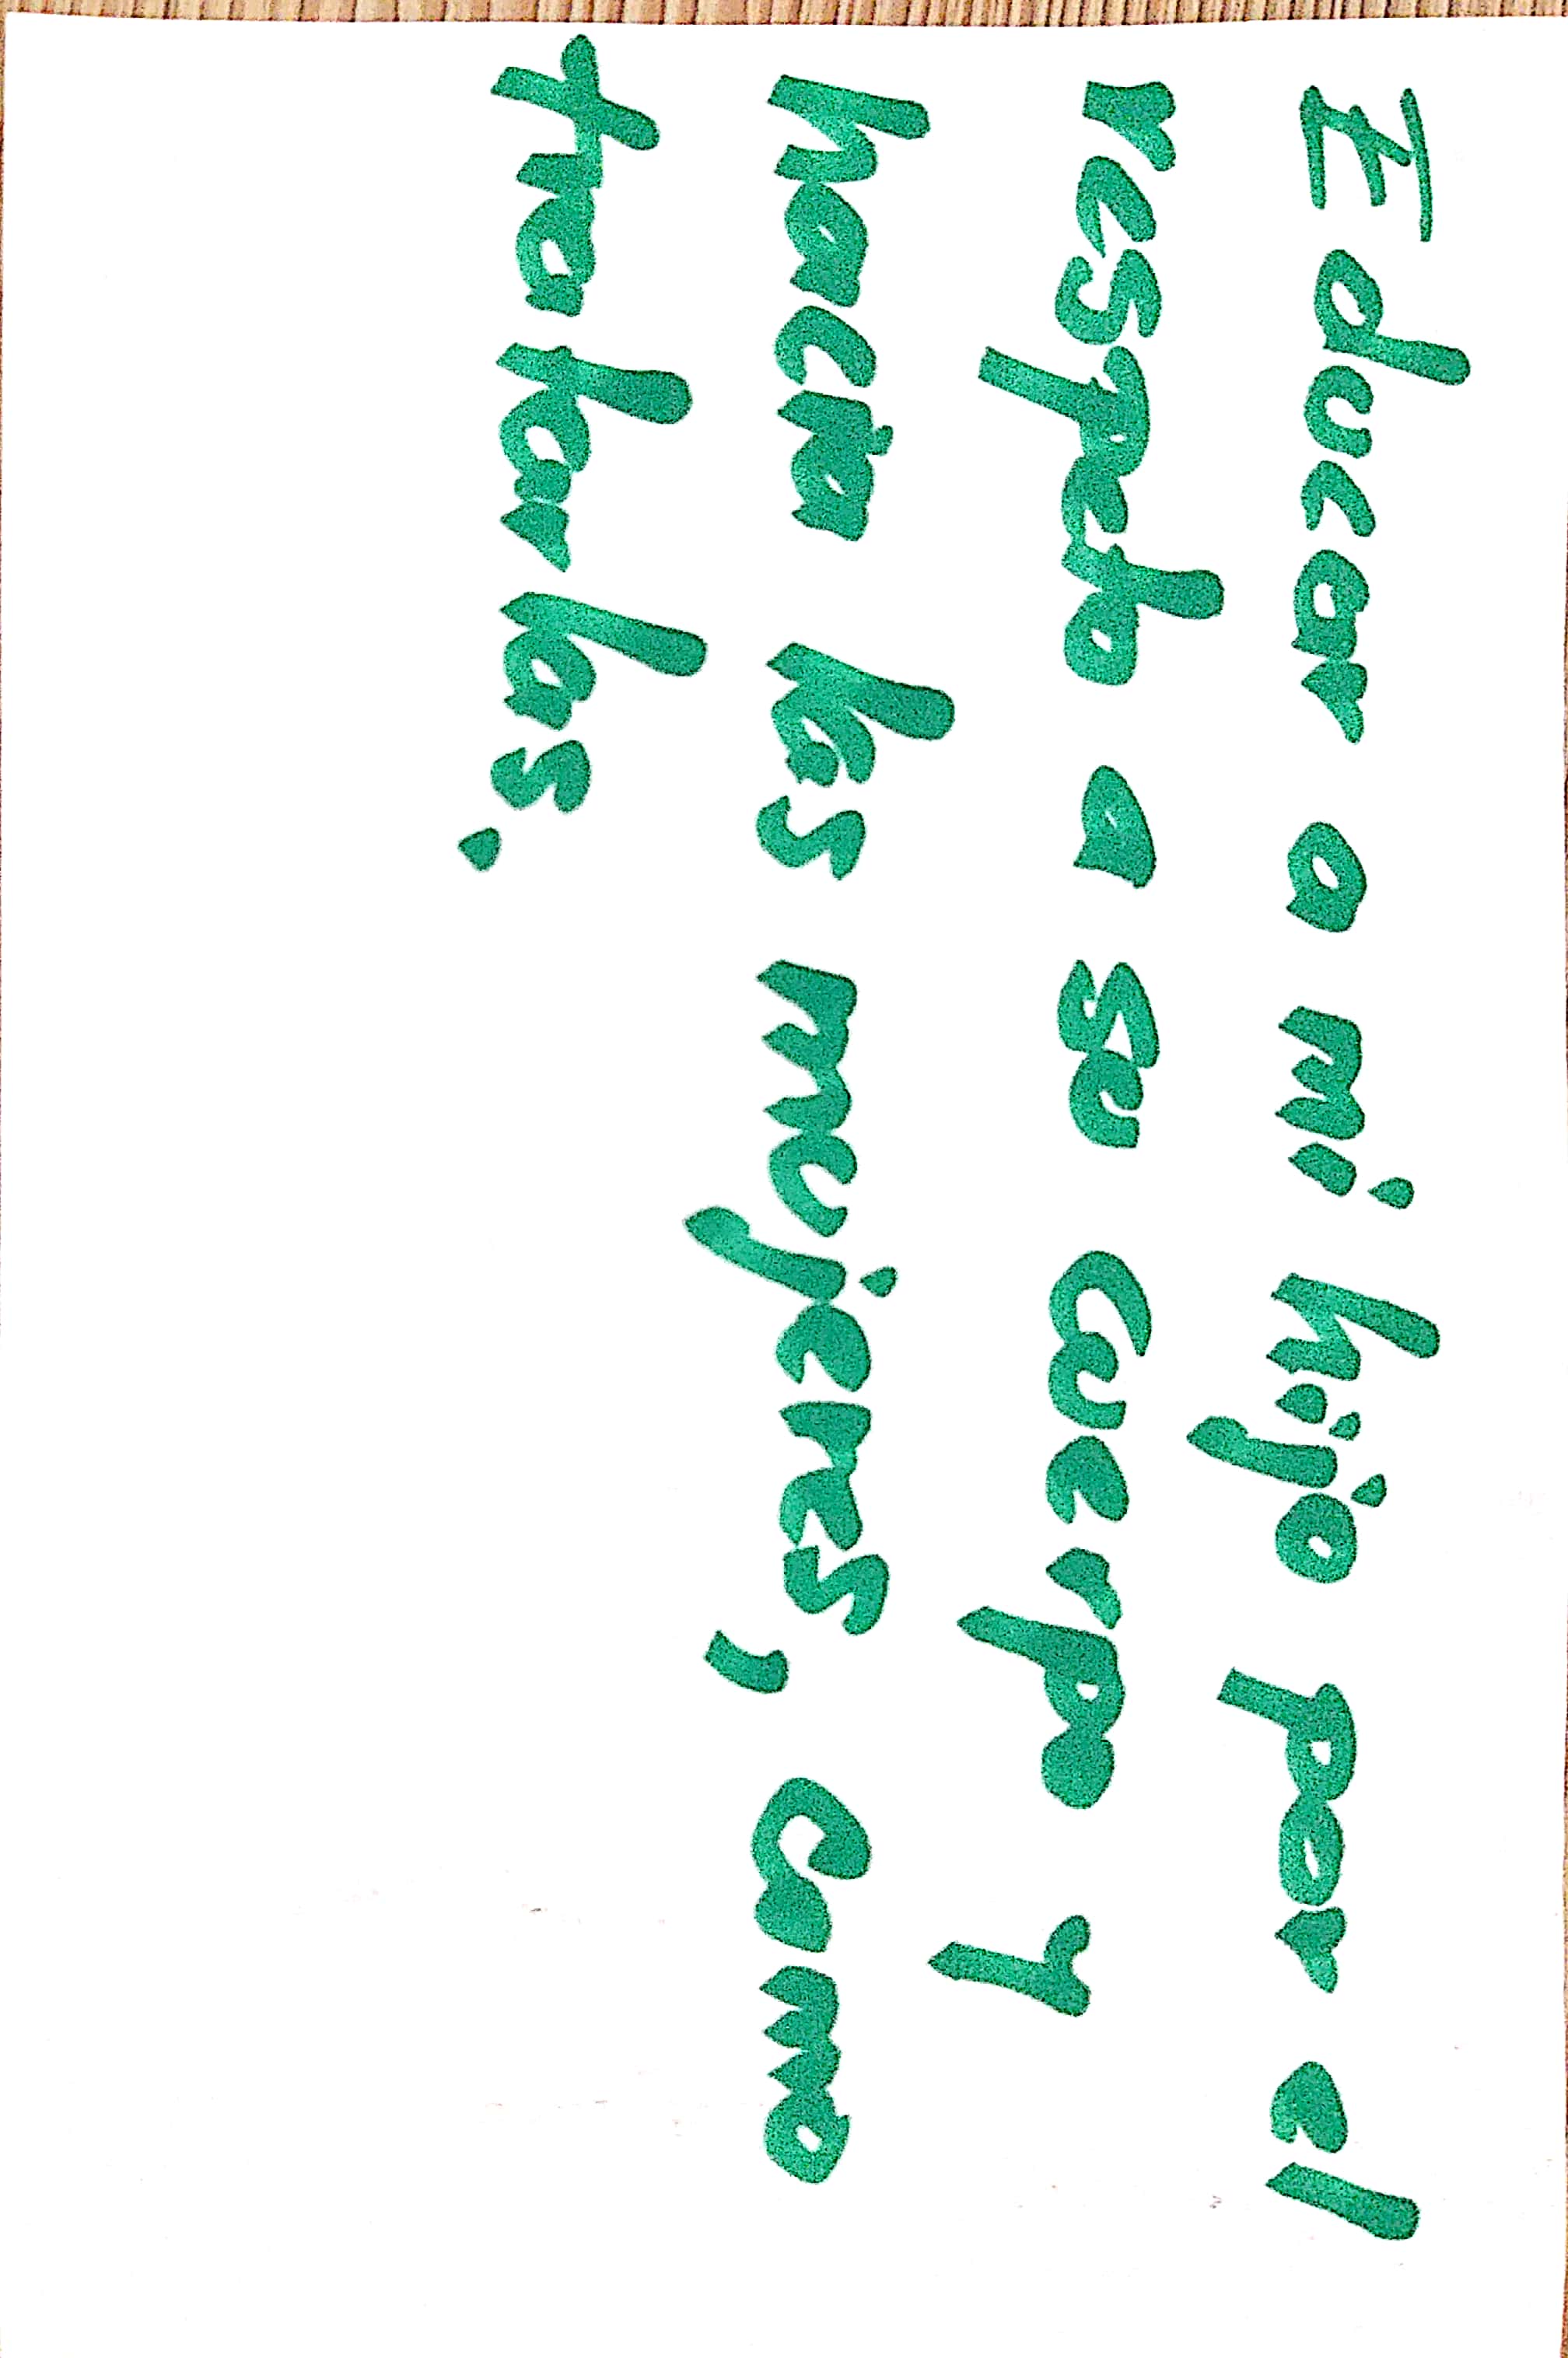 Educar a mi hijo por el
respeto a su cuerpo y
hacia las mujeres, como
tratarlas.